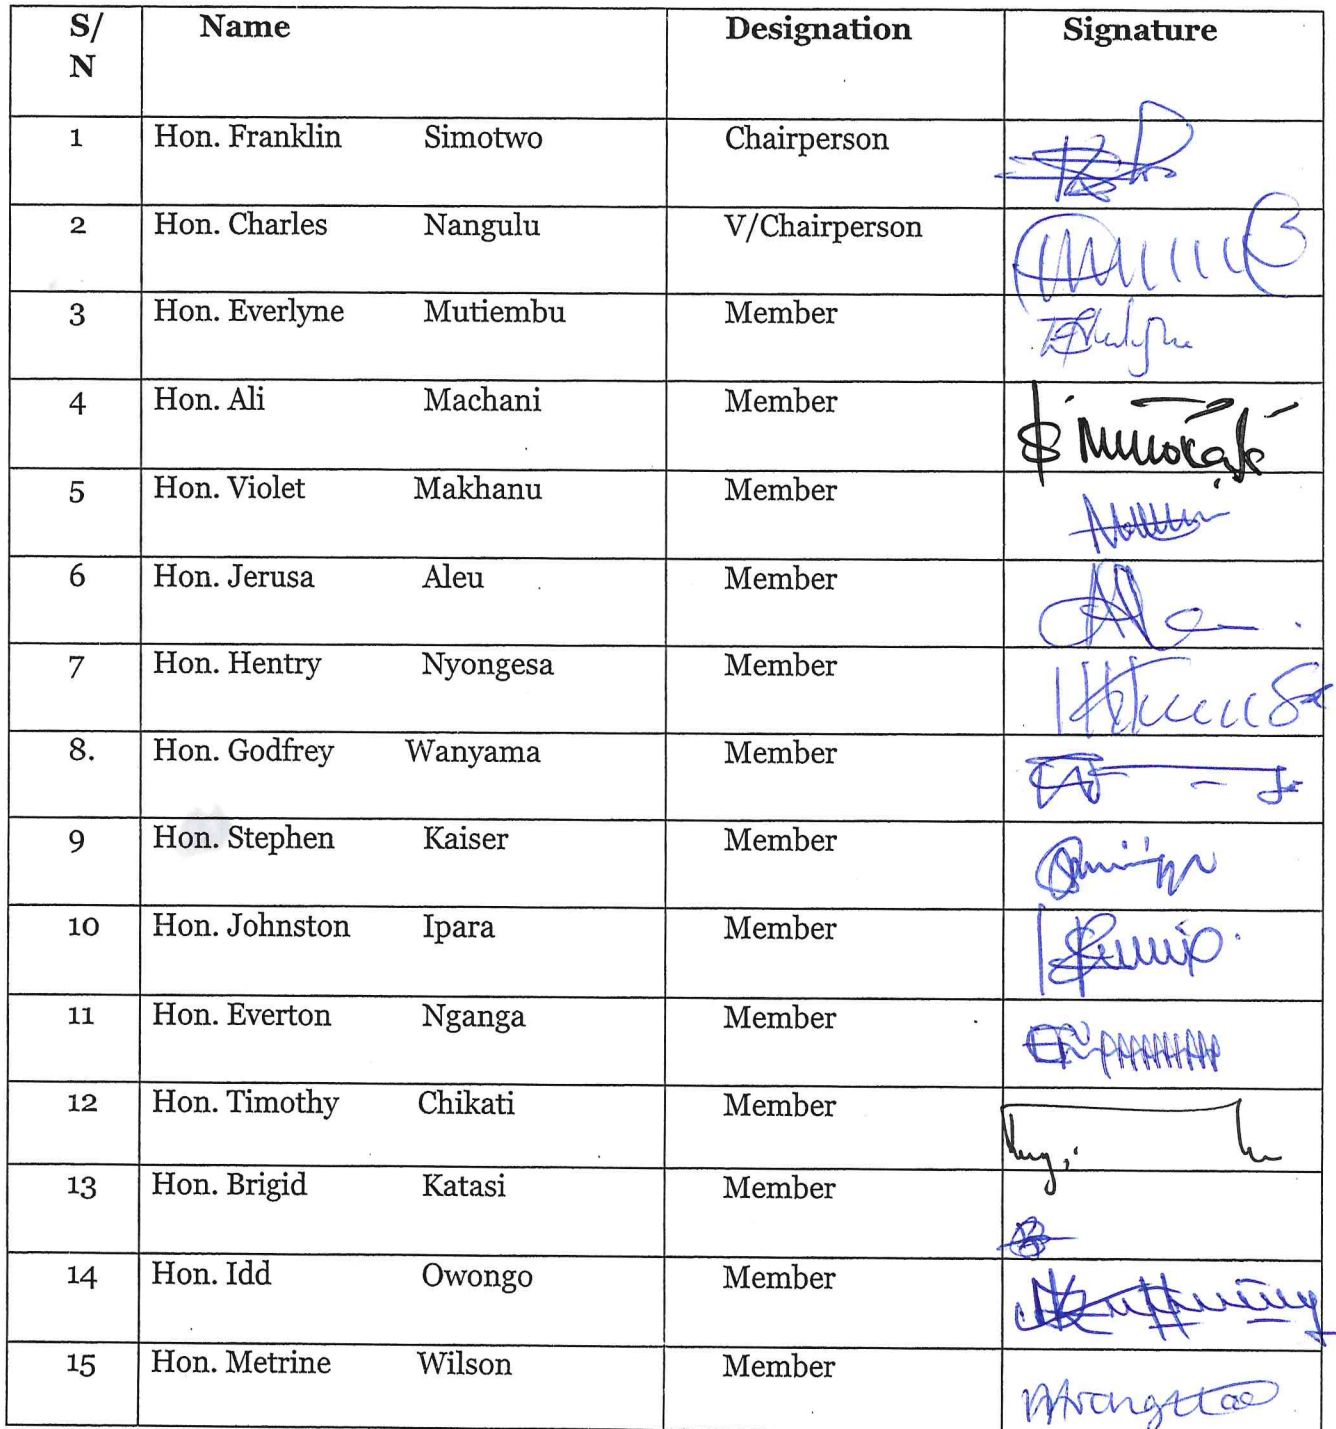 S/ Name Designation Signature
N
1 Hon. Franklin Simotwo Chairperson
2 Hon. Charles Nangulu V/Chairperson
3 Hon. Everlyne Mutiembu Member
4 Hon. Ali Machani Member
5 Hon. Violet Makhanu Member
6 Hon. Jerusa Aleu Member
7 Hon. Hentry Nyongesa Member
8. Hon. Godfrey Wanyama Member
9 Hon. Stephen Kaiser Member
10 Hon. Johnston Ipara Member
11 Hon. Everton Nganga Member
12 Hon. Timothy Chikati Member
13 Hon. Brigid Katasi Member
14 Hon. Idd Owongo Member
15 Hon. Metrine Wilson Member